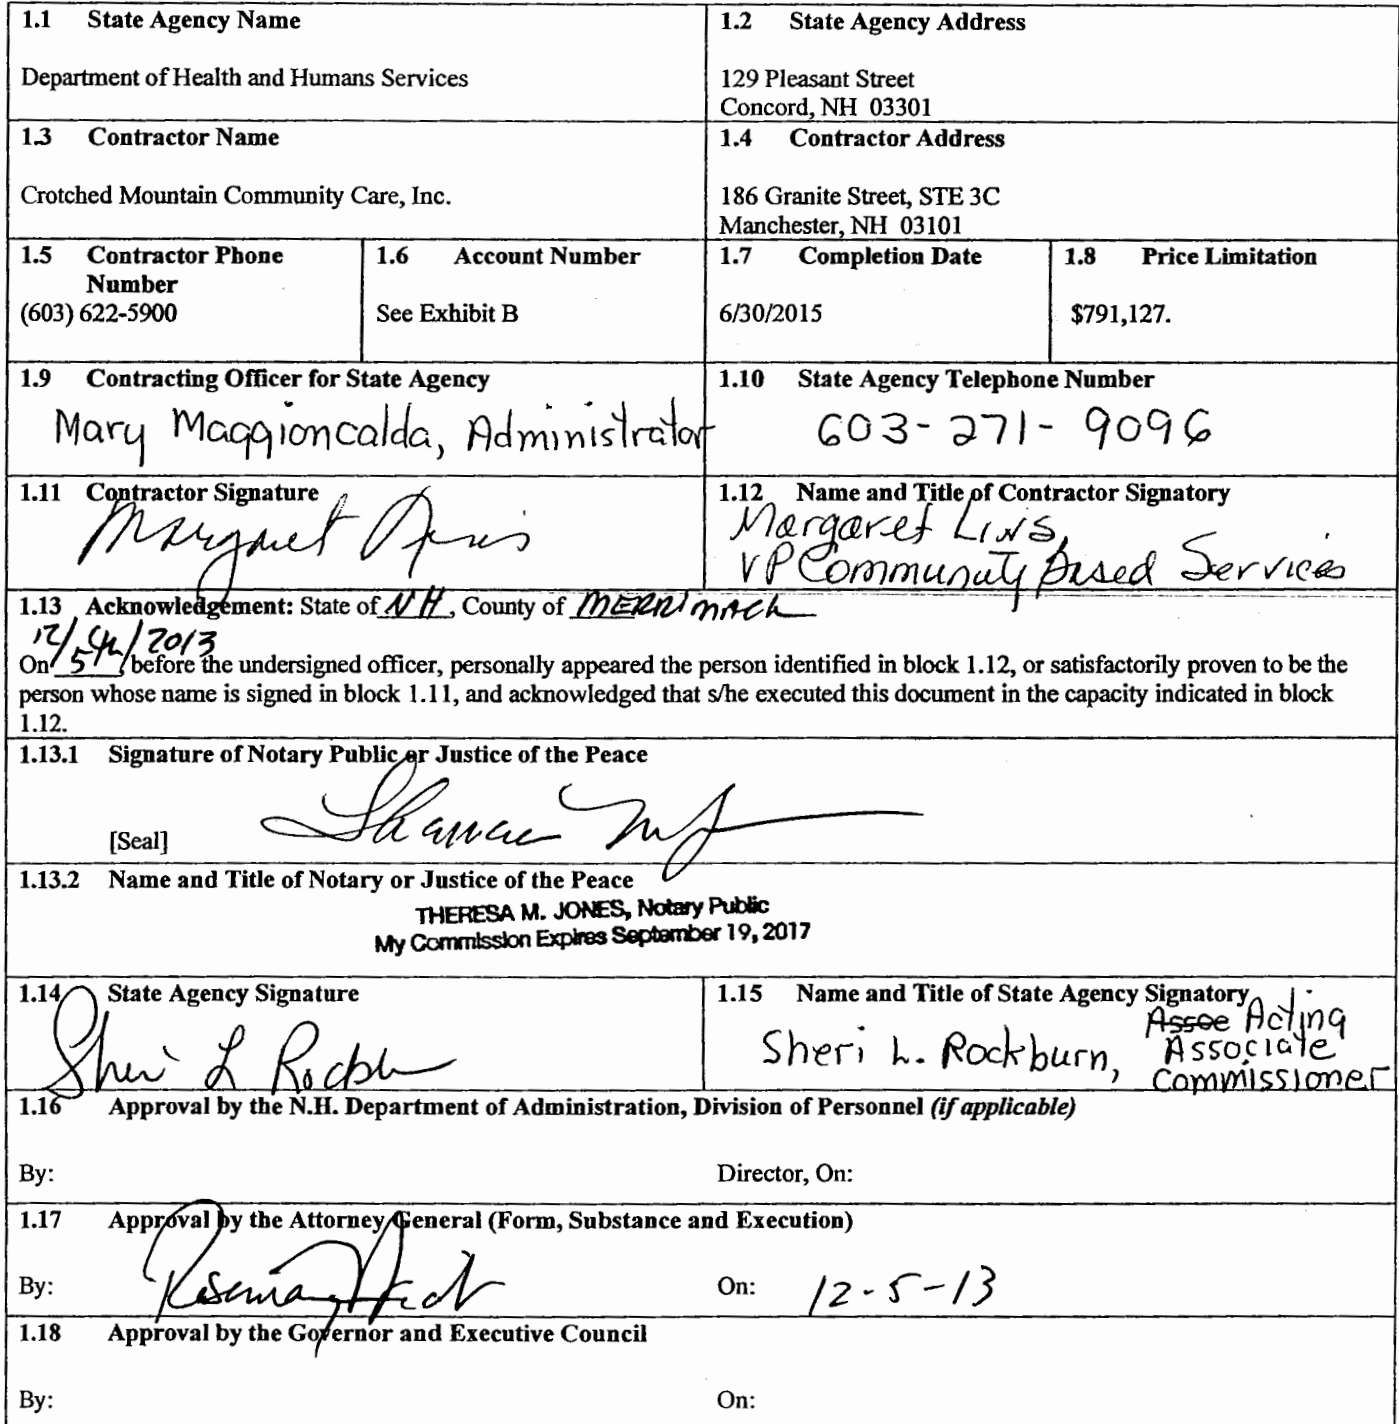 1.1 State Agency Name
Department of Health and Humans Services
1.2 State Agency Address
129 Pleasant Street
Concord, NH 03301
1.3 Contractor Name
Crotched Mountain Community Care, Inc.
1.4 Contractor Address
186 Granite Street, STE 3C
Manchester, NH 03101
1.5 Contractor Phone
Number
(603) 622-5900
1.6 Account Number
See Exhibit B
1.7 Completion Date
6/30/2015
1.8 Price Limitation
$791,127.
1.9 Contracting Officer for State Agency
Mary Maggioncalda, Administrator
1.10 State Agency Telephone Number
603-271-9096
1.11 Contractor Signature
Margaret
1.12 Name and Title of Contractor Signatory
Margaret
VP Community Based Services
1.13 Acknowledgement: State of NH, County of MERRIMACK
12/5th/2013
On , before the undersigned officer, personally appeared the person identified in block 1.12, or satisfactorily proven to be the
person whose name is signed in block 1.11, and acknowledged that s/he executed this document in the capacity indicated in block
1.12.
1.13.1 Signature of Notary Public or Justice of the Peace
[Seal]
1.13.2 Name and Title of Notary or Justice of the Peace
THERESA M. JONES, Notary Public
My Commission Expires September 19, 2017
1.14 State Agency Signature
Sheri L Rockb
1.15 Name and Title of State Agency Signatory
Assoc Acting
Sheri L. Rockburn, Associate
Commissioner
1.16 Approval by the N.H. Department of Administration, Division of Personnel (if applicable)
By: Director, On:
1.17 Approval by the Attorney General (Form, Substance and Execution)
By: Rosemary On: 12-5-13
1.18 Approval by the Governor and Executive Council
By: On: